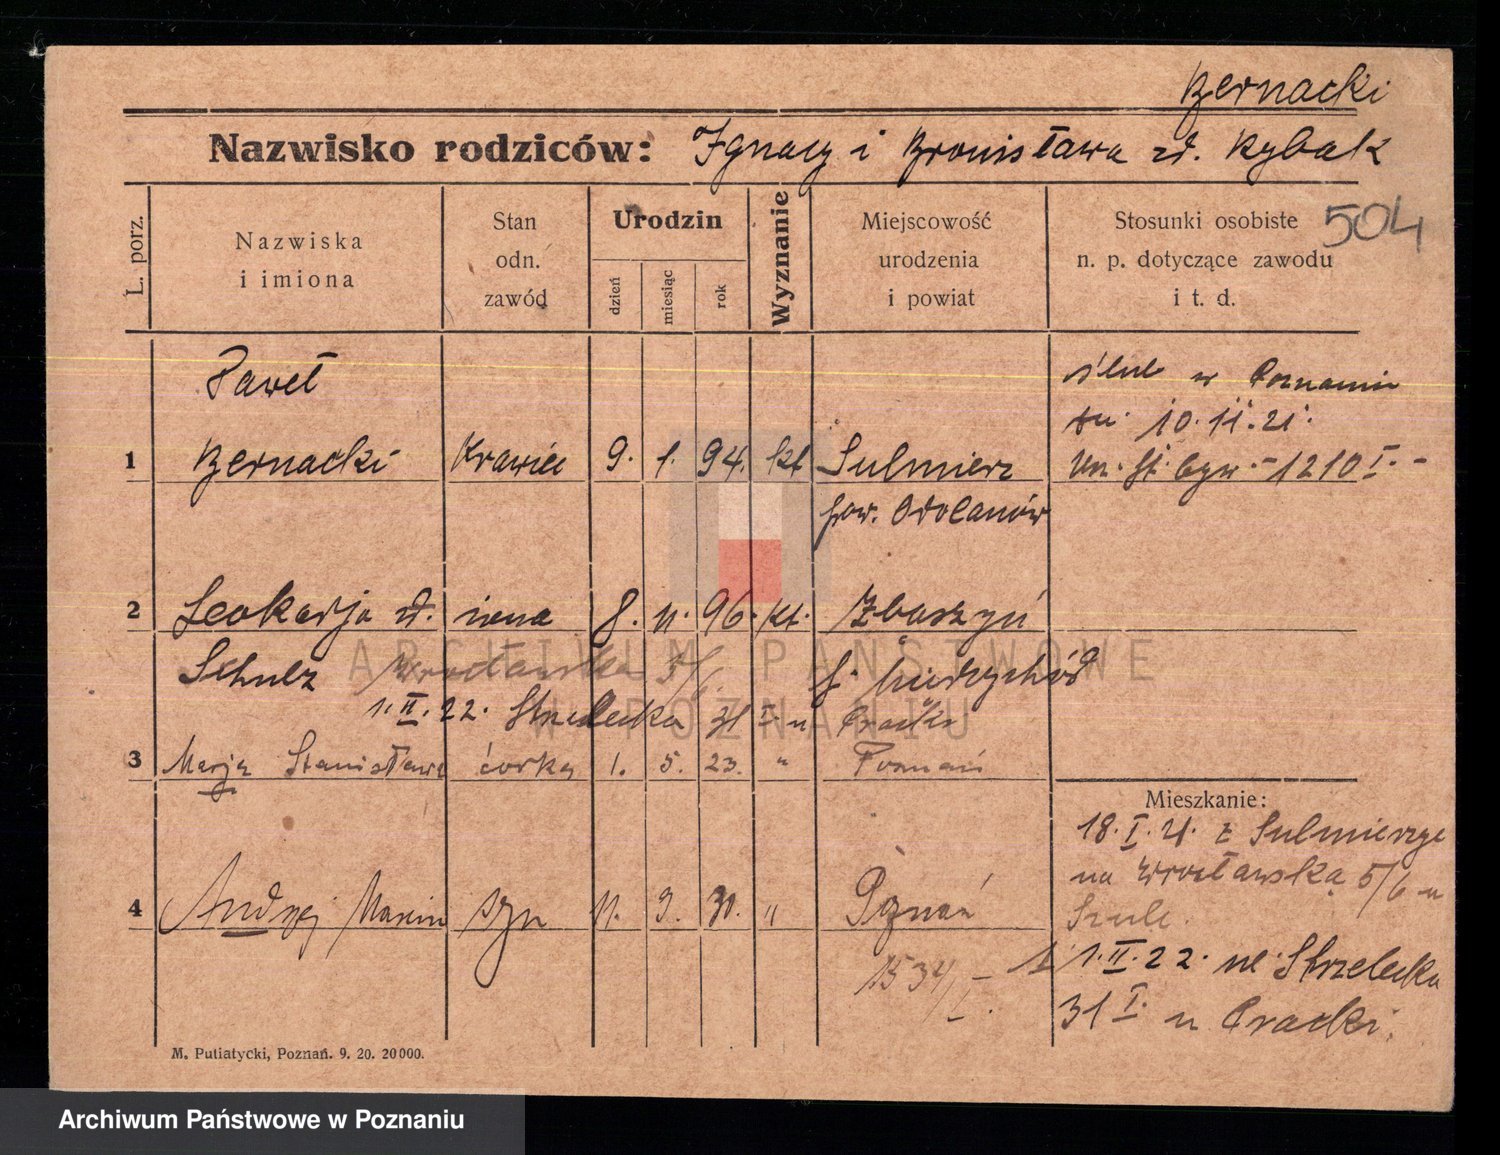 Bernacki
Nazwisko rodziców: Ignacy i Bronisława zd. Rybak
504
L. porz.
Nazwiska i imiona
Stan odn. zawód
Urodzin
dzień
miesiąc
rok
Wyznanie
Miejscowość urodzenia i powiat
Stosunki osobiste n. p. dotyczące zawodu i t. d.
Paweł
ślub w Poznaniu
dn. 10.11.21.
1 Bernacki Krawiec 9. 1. 94. kt Sulmierz
1210 I. -
pow. Odolanów
2 Leokadja zd. żona 8. 11. 96. kt. Zbąszyń
Schulz Wrocławska 5/6 p. Międzychód
1.II.22. Strzelecka 31 I. u Cracki
3 Marja Stanisława córka 1. 5. 23. " Poznań
Mieszkanie:
18.I.21. z Sulmierzyc
na Wrocławska 5/6 u
Szulc.
4 Andrzej Marcin syn 11. 9. 30. " Poznań
1534/I. -
1.II.22. ul. Strzelecka
31 I u Cracki.
M. Putiatycki, Poznań. 9. 20. 20000.
ARCHIWUM PAŃSTWOWE
W POZNANIU
Archiwum Państwowe w Poznaniu